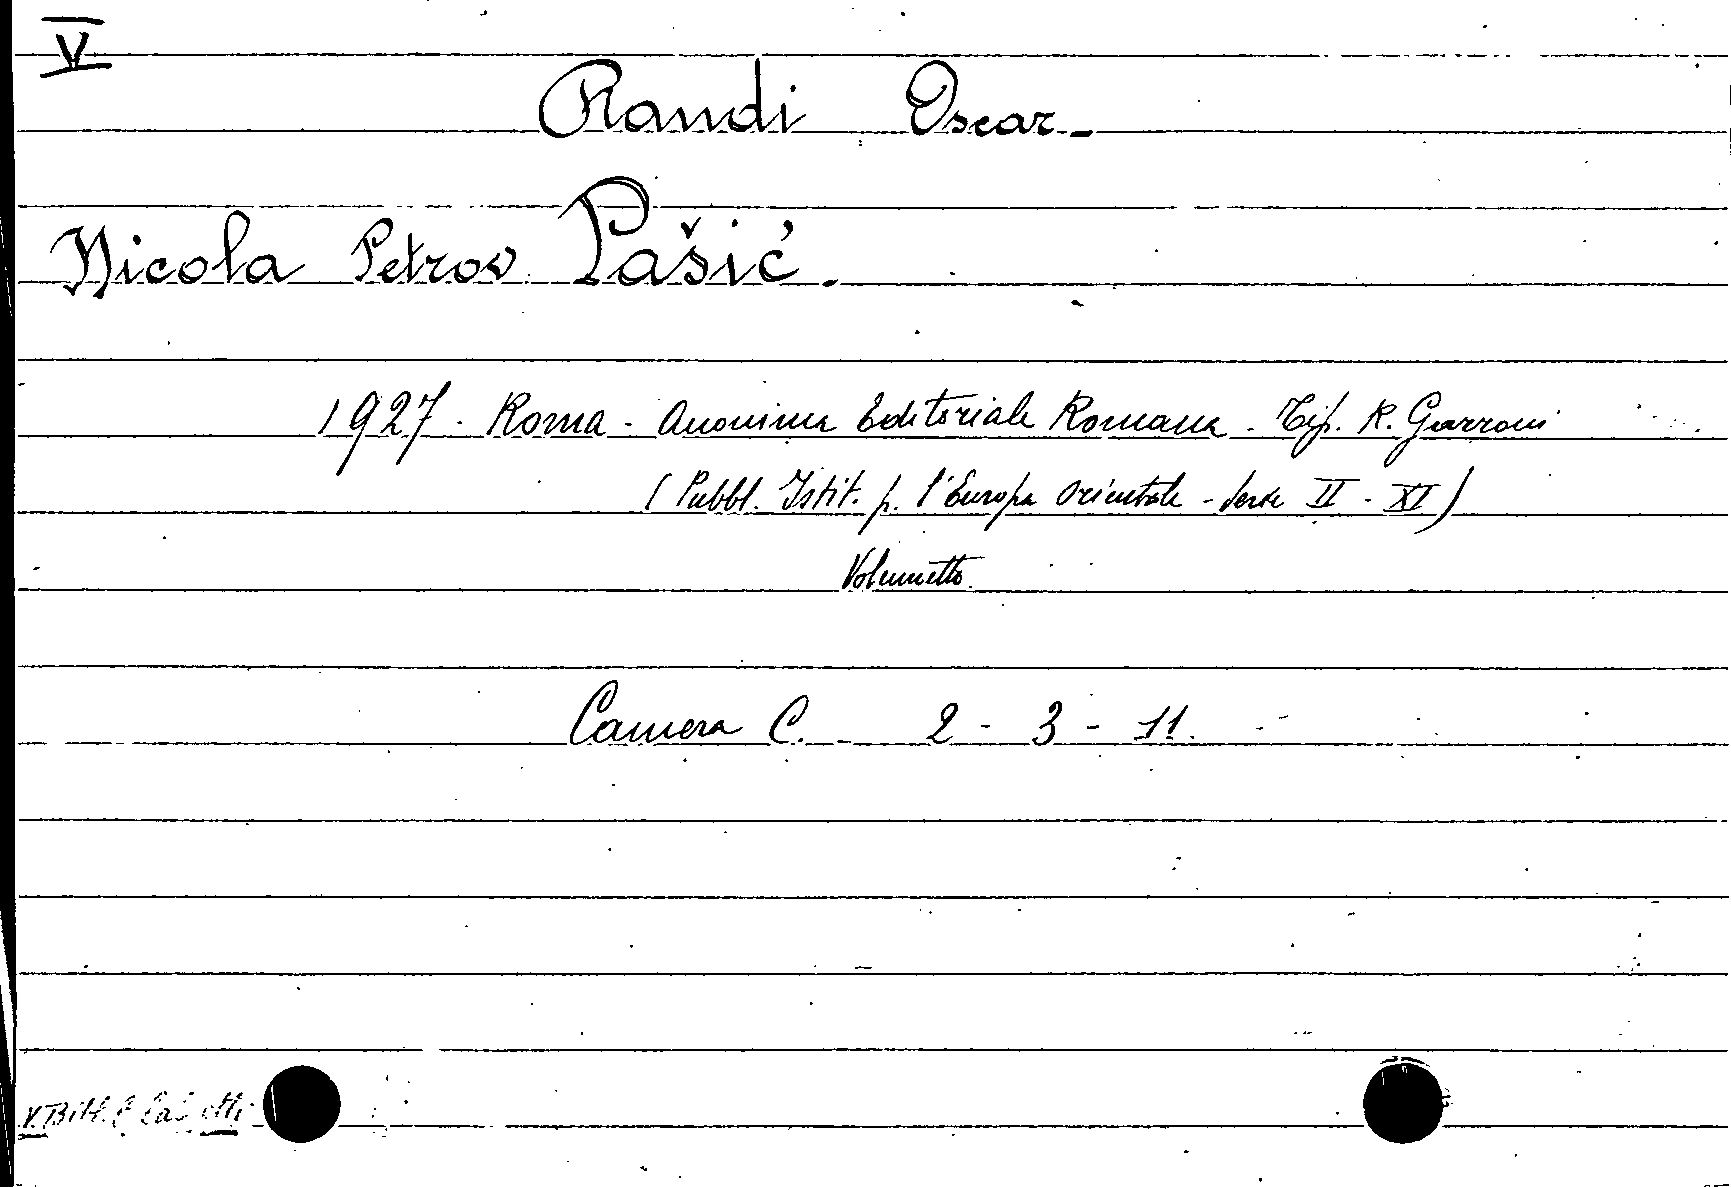 V
Randi Oscar-
Nicola Petrov Pašić.
1927 - Roma - Anonima Editoriale Romana - Tip. R. Garroni
(Pubbl. Istit. p. l'Europa Orientale - Serie II - XI)
Volumetto.
Camera C. - 2 - 3 - 11.